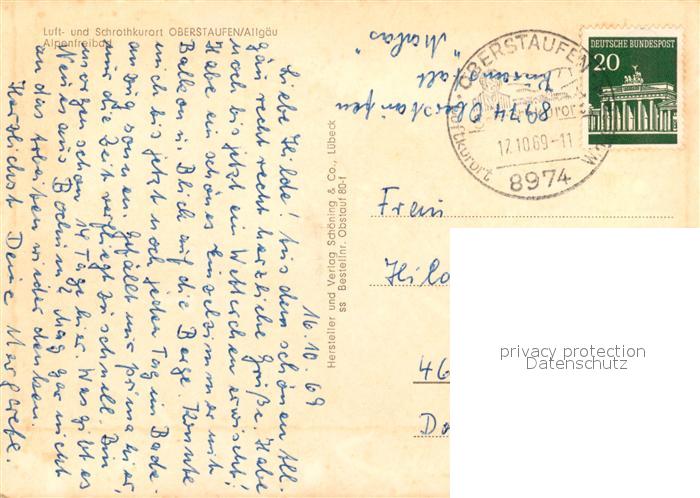 Luft- und Schrothkurort OBERSTAUFEN/Allgäu
Alpenfreibad
16.10.69
Liebe Hilde! Aus dem schönen All-
gäu recht recht herzliche Grüße. Habe
noch bis jetzt ein Wetterchen erwischt!
Habe ein schönes Einzelzimmer mit
Balkon u. Blick auf die Berge. Konnte
mich bis jetzt noch jeden Tag im Bade-
anzug sonnen. Gefällt mir prima hier,
nur die Zeit verfliegt zu schnell. Bin
morgen schon 14 Tage hier. Was gibt es
Neues aus Bochum? Mag gar nicht
an das Arbeiten wieder denken.
Herzlichst Deine Margarete.
Hersteller und Verlag Schöning & Co., Lübeck
ss Bestellnr. Obstauf 80-f
8974 Oberstaufen
Kuranstalt
"Malas"
OBERSTAUFEN
17.10.69-11
8974
DEUTSCHE BUNDESPOST
20
Frau
Hild
46
Do
privacy protection
Datenschutz